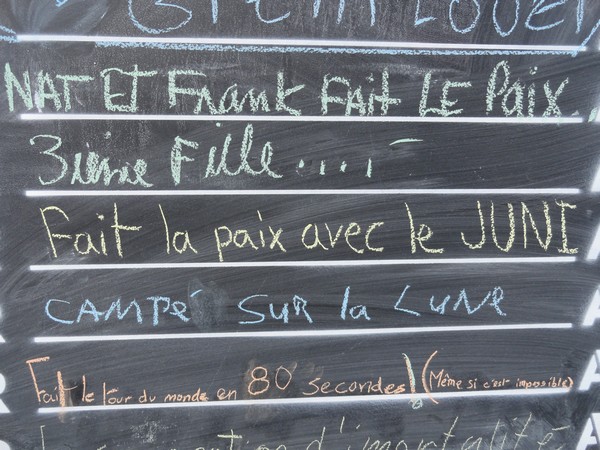 NAT ET Frank FAit LE Paix
3ième Fille....
Fait la paix avec le JUNI
CAMPé SUR la LUNE
Fait le tour du monde en 80 secondes! (Même si c'est impossible)
d'immortalité